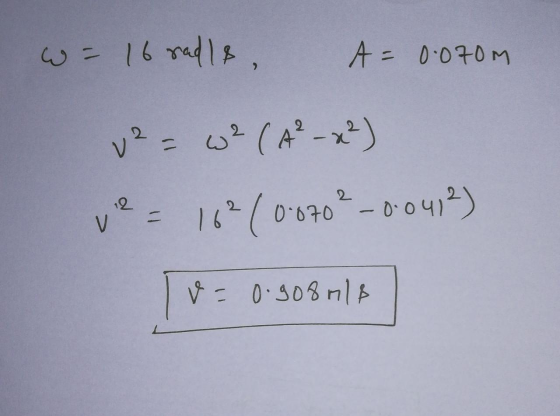 ω = 16 rad/s, A = 0.070m
v² = ω² (A² - x²)
v² = 16² (0.070² - 0.041²)
v = 0.908 m/s